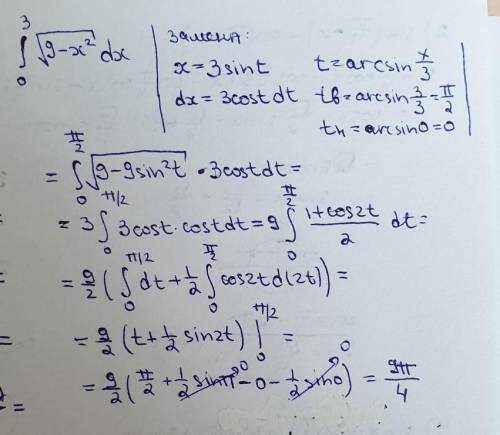 ∫₀³ √(9-x²) dx | Замена:
x = 3 sin t   t = arcsin x/3
dx = 3cost dt   tв = arcsin 3/3 = π/2
tн = arcsin 0 = 0
= ∫₀^(π/2) √(9-9sin²t) · 3cost dt =
= 3 ∫₀^(π/2) 3cost · cost dt = 9 ∫₀^(π/2) (1+cos2t)/2 dt =
= 9/2 (∫₀^(π/2) dt + 1/2 ∫₀^(π/2) cos2t d(2t)) =
= 9/2 (t + 1/2 sin2t) |₀^(π/2) =
= 9/2 (π/2 + 1/2 sinπ - 0 - 1/2 sin0) = 9π/4